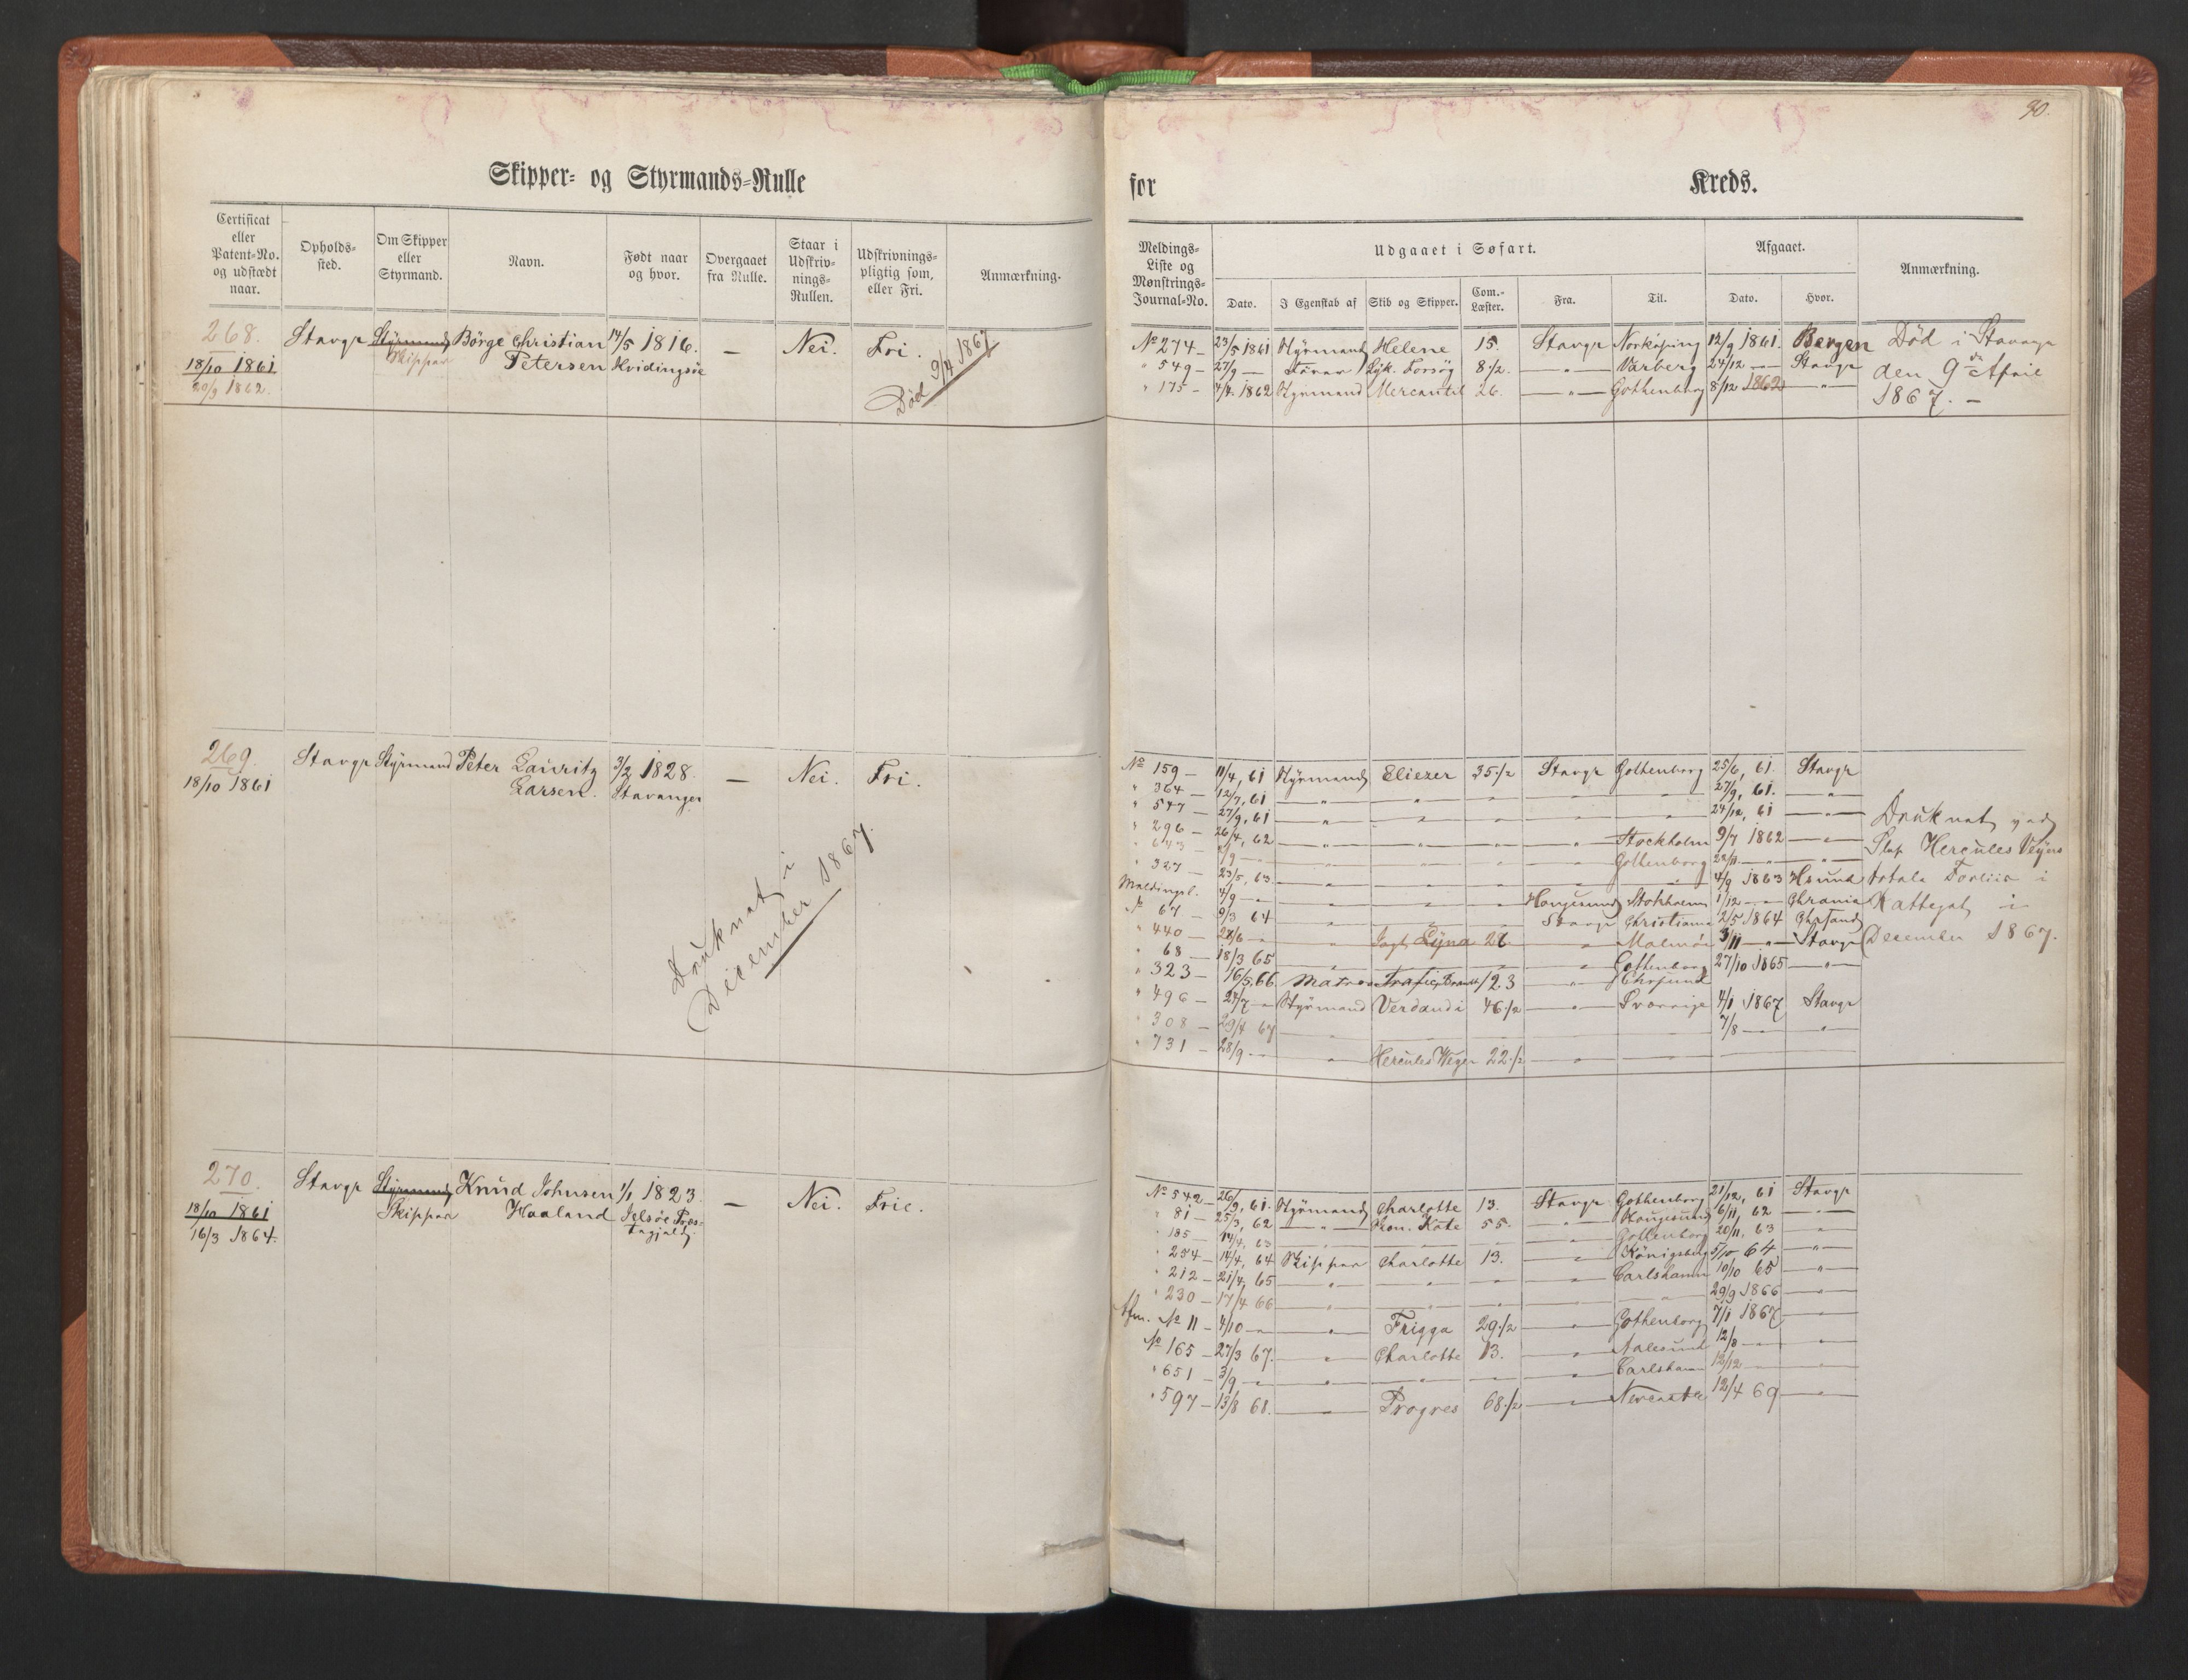 90.
Skipper- og Styrmands-Rulle
for Kreds.
Certificat eller Patent-No. og udstædt naar.
Opholds-sted.
Om Skipper eller Styrmand.
Navn.
Født naar og hvor.
Overgaaet fra Rulle.
Staar i Udskriv-nings-Rullen.
Udskrivnings-pligtig som, eller Fri.
Anmærkning.
Meldings-Liste og Mønstrings-Journal-No.
Udgaaet i Søfart.
Dato. I Egenskab af Skib og Skipper. Com.-Læster. Fra. Til.
Afgaaet.
Dato. Hvor.
Anmærkning.
268. Stavgr Styrmand Börge Christian 14/5 1816. — Nei. Fri.
18/10 1861 Skipper Petersen Hvidingsöe
20/9 1862.
Död 9/4 1867
No 274 — 23/5 1861 Styrmand Helene 15. Stavgr Norköping 12/9 1861. Bergen
" 549 — 27/9 — Lyk. Forsög 8 1/2. — " — Varberg 24/12 — Stavgr
" 175 — 4/4 1862 Styrmand Mercantil 26. — " — Gothenborg 8/12 1862 — " —
Död i Stavangr
den 9de April
1867. —
269. Stavgr Styrmand Peter Lauritz 3/2 1828. — Nei. Fri.
18/10 1861 Larsen. Stavanger
Druknat i
December 1867.
No 159 — 11/4, 61 Styrmand Eliezer 35 1/2 Stavgr Gothenborg 25/6, 61. Stavgr
" 364 — 12/7, 61 — " — — " — " — " — — " — 27/9, 61. — " —
" 547 — 27/9, 61 — " — — " — " — " — — " — 24/12, 61 — " —
" 296 — 26/4, 62 — " — — " — " — " — Stockholm 9/7 1862 — " —
" 643 — /9 — — " — — " — " — " — Gothenborg 22/11 — " — — " —
" 327 — 23/5, 63. — " — — " — " — " — — " — 4/9 1863 Hsund
Meldingsl. 4/9 — — " — — " — " — Haugesund Stokholm 1/12 — — Chrania
No 67 — 9/3 64 — " — — " — " — Stavgr Christiania 2/5 1864 Chrsand
" 440 — 28/6 — " — Jagt Lyna 26 — " — Malmöe 3/11 — " — Stavgr
" 68 — 18/3 65 — " — — " — — " — Gothenborg 27/10 1865 — " —
" 323 — 16/5 66 Matros 123 — " — Chrsund
" 496 — 24/7 — " Styrmand Verdandi 46 1/2 — " — Sverrige 4/1 1867 Stavgr
" 308 — 29/4 67 — — — — — 7/8 — — " —
" 731 — 28/9 — — " — Hercules Weyer 22 1/2 — " — — —
Druknat ved
Slup Hercules Veyers
totale Forliis i
Kattegat i
December 1867.
270. Stavgr Styrmand Knud Johnsen 1/1 1823. — Nei. Frie.
18/10 1861 Skipper Haaland Jelsöe Præs-
16/3 1864. tegjæld.
No 542 — 26/9, 61. Styrmand Charlotte 13. Stavgr Gothenborg 21/12, 61 Stavgr
" 81 — 25/3, 62 — " — Kate 55. — " — Haugesund 6/11, 62 — " —
" 185 — 14/4, 63 — " — — " — — " — Gothenborg 20/11, 63 "
" 254 — 14/4, 64 Skipper Charlotte 13. — " — Königsberg 5/10 64 — " —
" 212 — 21/4, 65 — " — — " — " — " — Carlshamn 10/10 65 — " —
" 230 — 17/4 66 — " — — " — " — " — — " — 29/9 1866 — " —
No 11 — 4/10 — " — " — Frigga 29 1/2 — " — Gothenborg 7/1 1867 — " —
No 165 — 27/3 67. — " — Charlotte 13. — " — Aalesund 12/8 — — " —
" 651 — 3/9 — " — " — — " — " — " — Carlshamn 12/12 — — " —
" 597 — 13/8 68. — " — Progres 68 1/2 — " — Newcastle 12/4 69 — " —